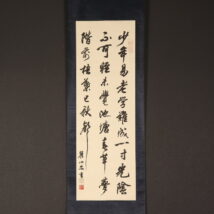 少年易老学難成一寸光陰
不可軽未覺池塘春草夢
階前梧葉已秋聲
書